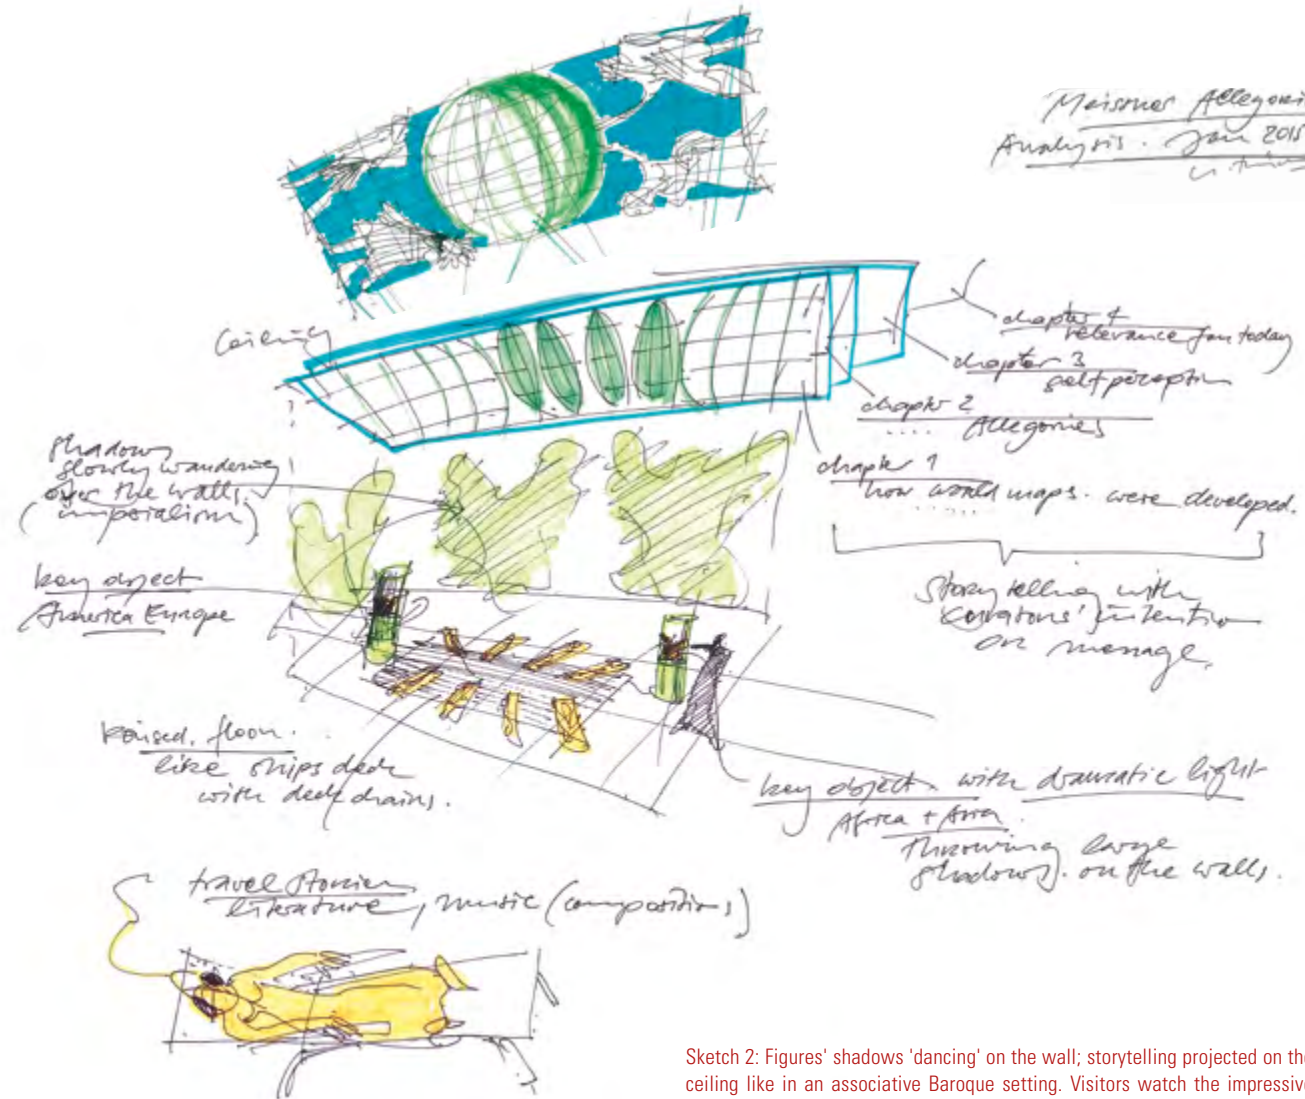 Meissner Allegori
Analysis. Jan 2015
Ceiling
chapter 4
relevance for today
chapter 3
self perception
chapter 2
..... Allegories
chapter 1
how world maps. were developed.
.....
shadows
slowly wandering
over the walls.
(imperialism)
key object
America Europe
storytelling with
curators' intention
or message.
Raised floor. .
like ships deck
with deck chairs.
key object. with dramatic light
Africa + Asia
throwing large
shadows. on the walls.
travel stories
literature, music (compositions)
Sketch 2: Figures' shadows 'dancing' on the wall; storytelling projected on the
ceiling like in an associative Baroque setting. Visitors watch the impressive